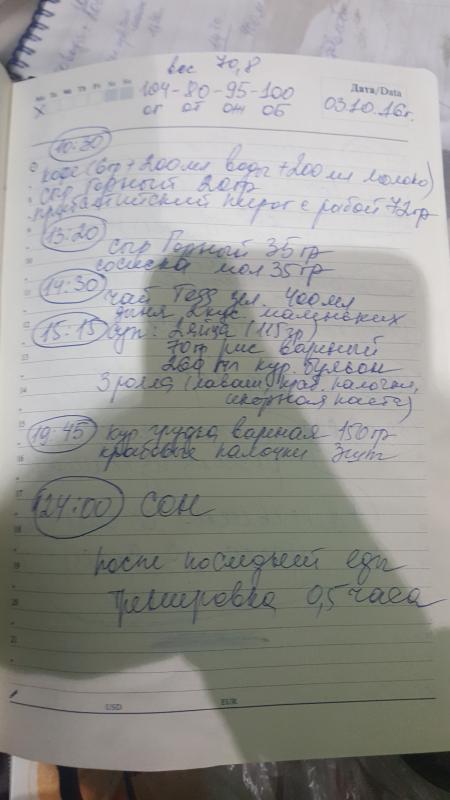 вес 70,8
Mo Tu We Th Fr Sa Su
X
104-80-95-100
ог от ож об
Дата/Data
03.10.16г.
10:30
кофе (6гр + 200мл воды + 200мл молоко)
сыр Горный 20гр
пирог с рыбой 72гр
13:20
сыр Горный 35гр
сосиска мол 35гр
14:30
чай Тесс зел. 400мл
дыня 2 кус. маленьких
15:15
суп: 2 яйца (115гр)
70гр рис вареный
260 мл кур. бульон
3 ролла (лаваш, краб. палочки,
икорная паста)
19:45
кур грудка вареная 150гр
крабовые палочки 3шт
24:00 сон
после последней еды
тренировка 0,5 часа
USD EUR